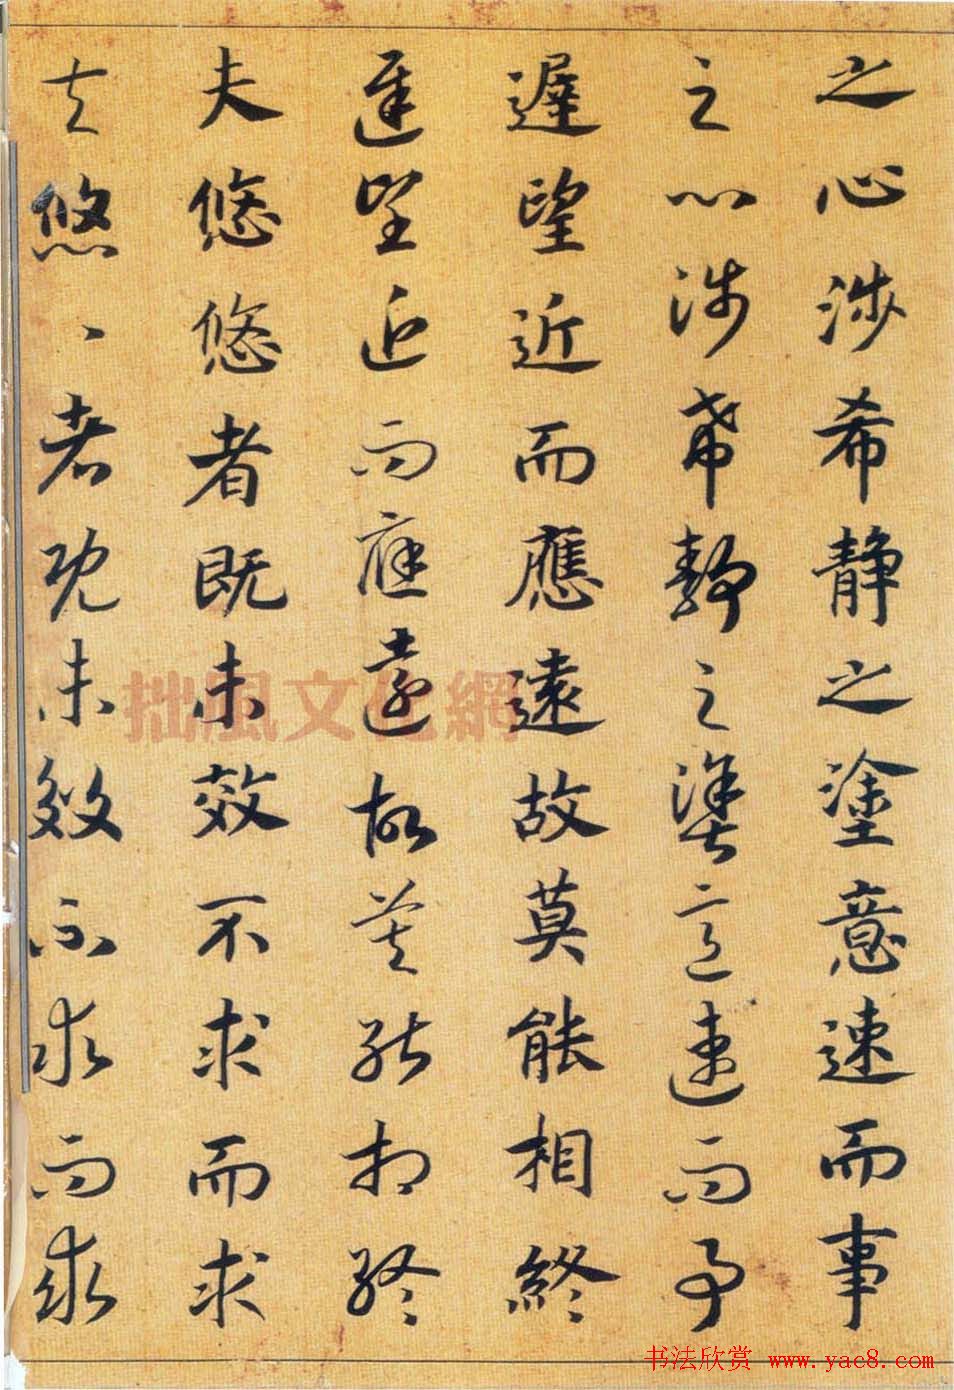 之心涉希静之塗意速而事
之心涉希静之塗意速而事
遲望近而應遠故莫能相終
遲望近而應遠故莫能相終
夫悠悠者既未效不求而求
夫悠丶者既未效不求而求
拙風文化網
书法欣赏 www.yac8.com